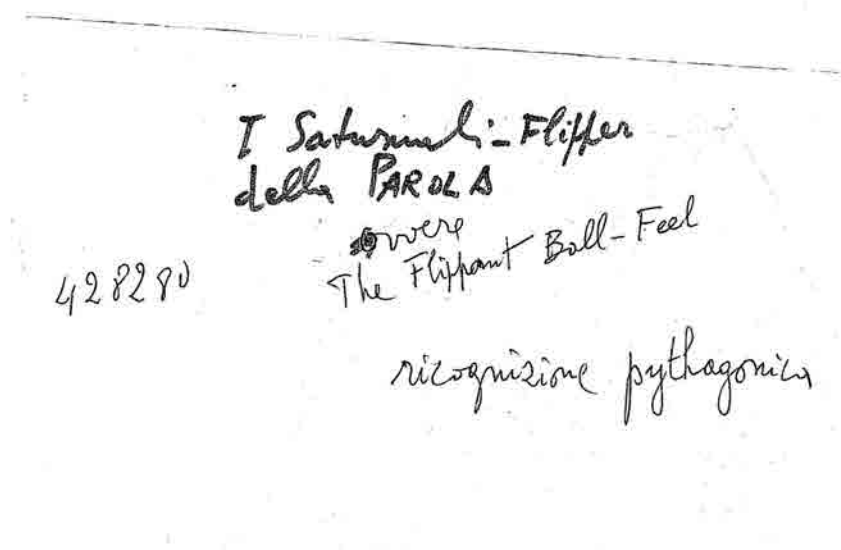 I Saturnali-Flipper
della PAROLA
ovvero
The Flippant Ball-Feel
428280
ricognizione pythagorica